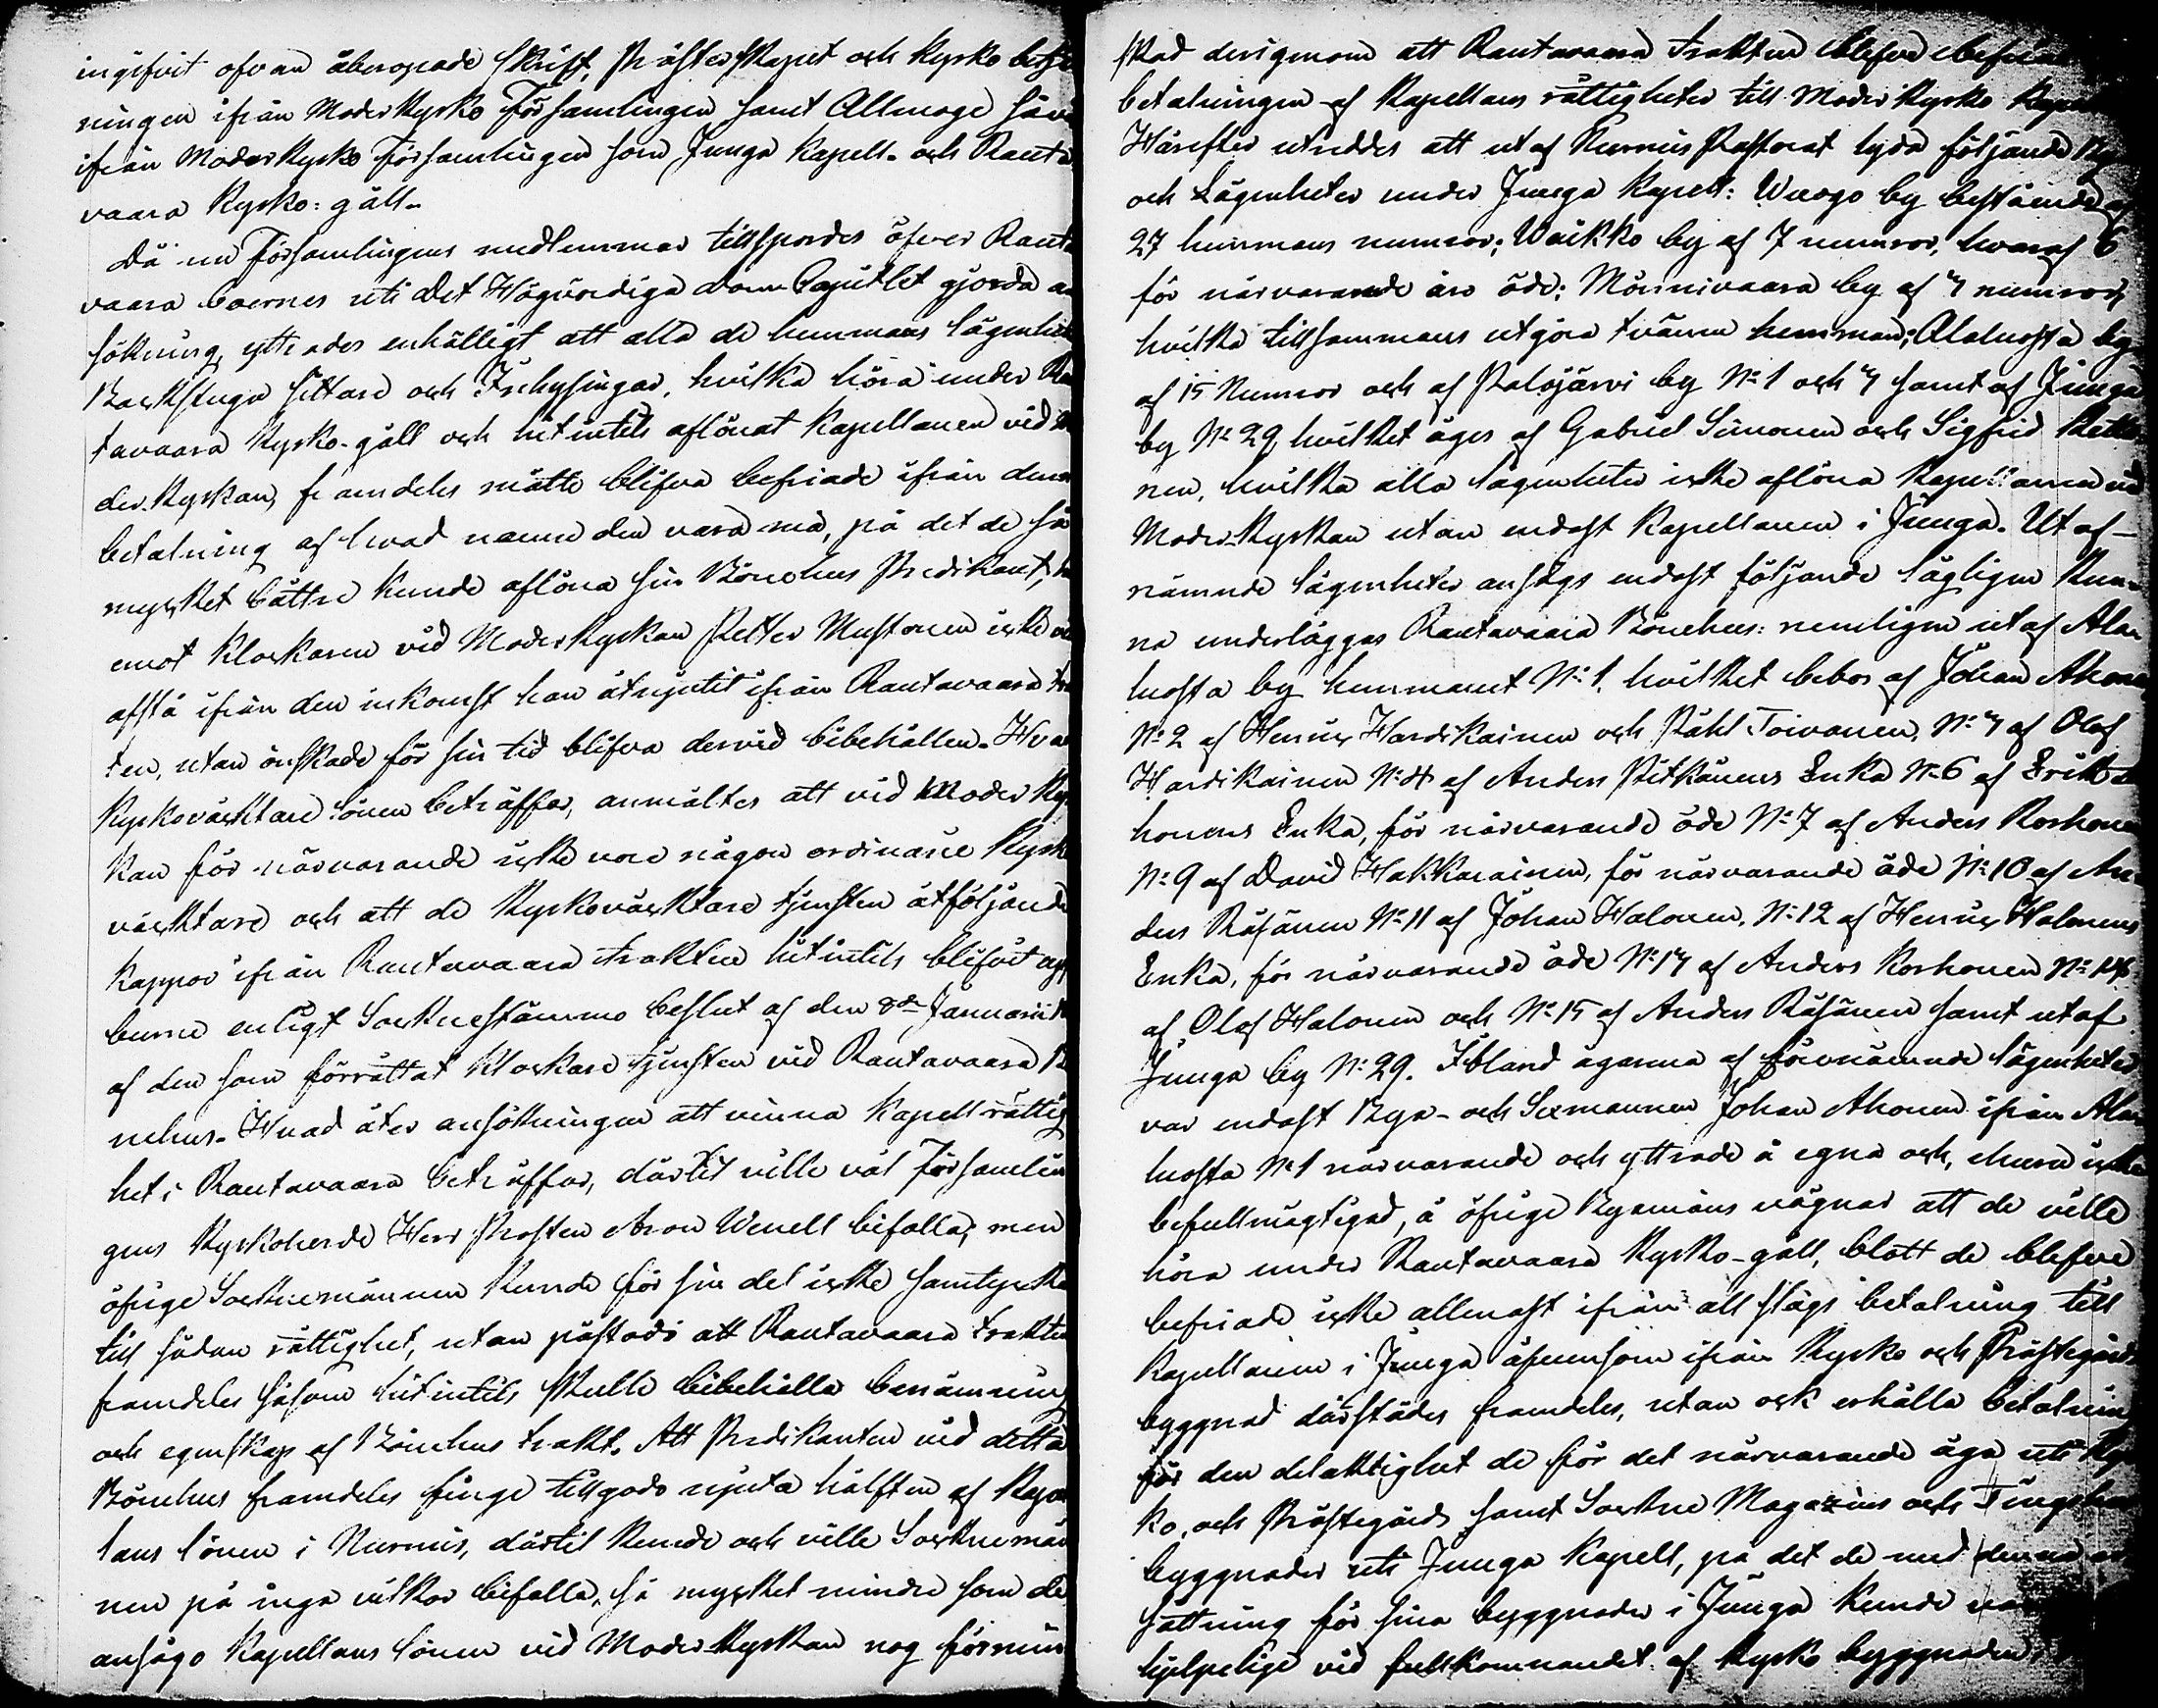 ingifvit ofvan åberopade skrift, Prästerskapet och Kyrko betje
ningen ifrån Moderkyrko Församlingen samt Allmoge såvä
ifrån Moderkyrko Församlingen som Juuga Kapell- och Rauta
vaara Kyrko-gäll.
Då nu Församlingens medlemmar tillspordes öfver Rauta
vaara boernes uti det Högvördiga Dom Capitlet gjorda an
sökning, yttrades enhälligt att alla de hemmans lägenhet
Backstugu sittare och Inhysingar, hvilka höra under Ra
tavaara Kyrko-gäll och hitintils aflönat Kapellanen vid M
der-Kyrkan, framdeles måtte blifva befriade ifrån denna
betalning af hvad namn den vara må, på det de så
mycket bättre kunde aflöna sin Bönehus Predikant,
emot Klockaren vid Moderkyrkan Petter Mustonen icke ve
afstå ifrån den inkomst han åtnjutit ifrån Rautavaara tra
ten, utan önskade för sin tid blifva dervid bibehållen. Hva
Kyrkovacktare lönen beträffar, anmältes att vid Moder Kyr
kan för närvarande icke vore någon ordinarie Kyrk
vacktare och att de Kyrkovacktare tjensten åtföljande
kappor ifrån Rautavaara trakten hitintils blifvit upp
burne enligt Sockne stämmo beslut af den 8de Januarii
af den som förrättat Klockare tjensten vid Rautavaara B
nehus. Hvad åter ansökningen att vinna Kapell rättig
het i Rautavaara beträffar, därtil ville väl Församlin
gens Kyrkoherde Herr Prosten Aron Wenell bifalla; men
öfrige Socknemännen kunde för sin del icke samtycka
till sådan rättighet, utan påstodo att Rautavaara trakten
framdeles såsom hitintils skulle bibehålla benämning
och egenskap af Bönehus trakt. Att Predikanten vid detta
Bönehus framdeles finge tillgodo njuta hälften af Kapel
lans lönen i Nurmis, därtil kunde och ville Socknemän
nen på inga vilkor bifalla, så mycket mindre som de
ansågo Kapellans lönen vid Moder-Kyrkan nog förmin
skad derigenom att Rautavaara trakten blefve befriad
betalningen af Kapellans rättigheter till Moder Kyrko
Härefter utreddes att utaf Nurmis Pastorat lyda följande By
och Lägenheter under Juuga Kapell: Wuogo by bestående af
27 hemmans numror; Waikko by af 7 numror, hvaraf 6
för närvarande äro öde; Mörnivaara by af 3 numror,
hvilka tillsammans utgöra tvänne hemman; Alaluosta by
af 15 Numror och af Palojärvi by No 1 och 3 samt af Juuga
by No 29 hvilket äges af Gabriel Simonen och Sigfrid Kette
nen, hvilka alla lägenheter icke aflöna Kapellanen vid
Moder-Kyrkan utan endast Kapellanen i Juuga. Utaf
nämnde lägenheter ansågs endast följande lägligen kun-
na underläggas Rautavaara Bönehus: nemligen utaf Ala-
luosta by hemmanet No 1, hvilket bebos af Johan Ahonen
No 2 af Henric Hardikainen och Påhl Toivanen, No 3 af Olof
Hardikainen No 4 af Anders Pitkänens Enka No 6 af Erik
honens Enka, för närvarande öde No 7 af Anders Korhonen
No 9 af David Hakkarainen, för närvarande öde No 10 af An
ders Räsänen No 11 af Johan Halonen, No 12 af Henric Halonens
Enka, för närvarande öde No 13 af Anders Korhonen No 14
af Olof Halonen och No 15 af Anders Räsänen samt utaf
Juuga by No 29. Ibland ägarna af förenämnde lägenheter
var endast Bya- och Sexmannen Johan Ahonen ifrån Ala
luosta No 1 närvarande och yttrade å egna och, ehuru icke
befullmägtigad, å öfrige Byamäns vägnar att de ville
höra under Rautavaara Kyrko-gäll, blott de blefve
befriade icke allenast ifrån all slags betalning till
Kapellanen i Juuga äfvensom ifrån Kyrko och Prästegårds
byggnad därstädes framdeles, utan ock erhålla betalning
för den delaktighet de för det närvarande äga uti Kyr
ko, och Prästegårds samt Sockne Magazins och Tings
byggnader uti Juuga Kapell, på det de med denna er
sättning för sina byggnader i Juuga kunde
hjelpelige vid fullkomnandet af Kyrko byggnaden